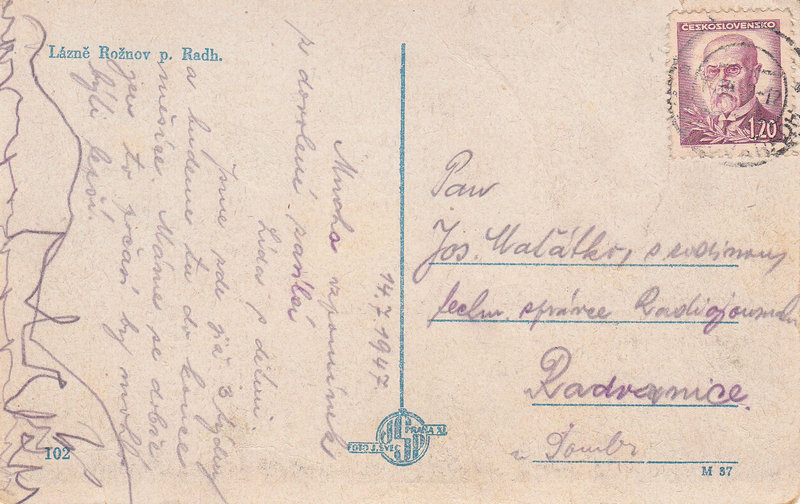 Lázně Rožnov p. Radh.
14.7.1947
Mnoho vzpomínek
z dovolené posílá
Lída s dětmi.
Jsme zde již 3 týdny
a budeme tu do konce
měsíce. Máme se dobře
jen to počasí by mohlo
býti lepší.
102
FOTO J. ŠVEC PRAHA XI.
JSP
ČESKOSLOVENSKO
1.20
Pan
Jos. Maťátko, s rodinou
techn. správce
Radvanice
M 37